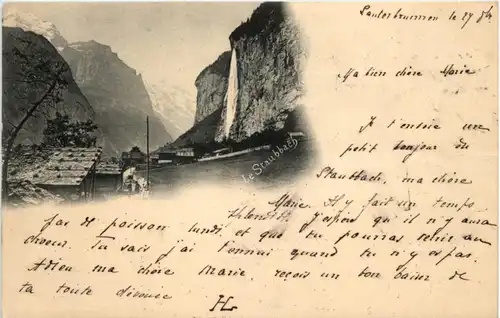 Lauterbrunnen le 27
Ma bien chère Marie
Je t'envoie un
petit bonjour du
Staubbach, ma chère
Marie. Il y fait un temps
splendide. J'espère qu'il n'y aura
pas de poisson lundi, et que tu pourras venir au
chœur. Tu sais j'ai l'ennui quand tu n'y es pas.
Adieu ma chère Marie, reçois un bon baiser de
ta toute dévouée
H
Le Staubbach